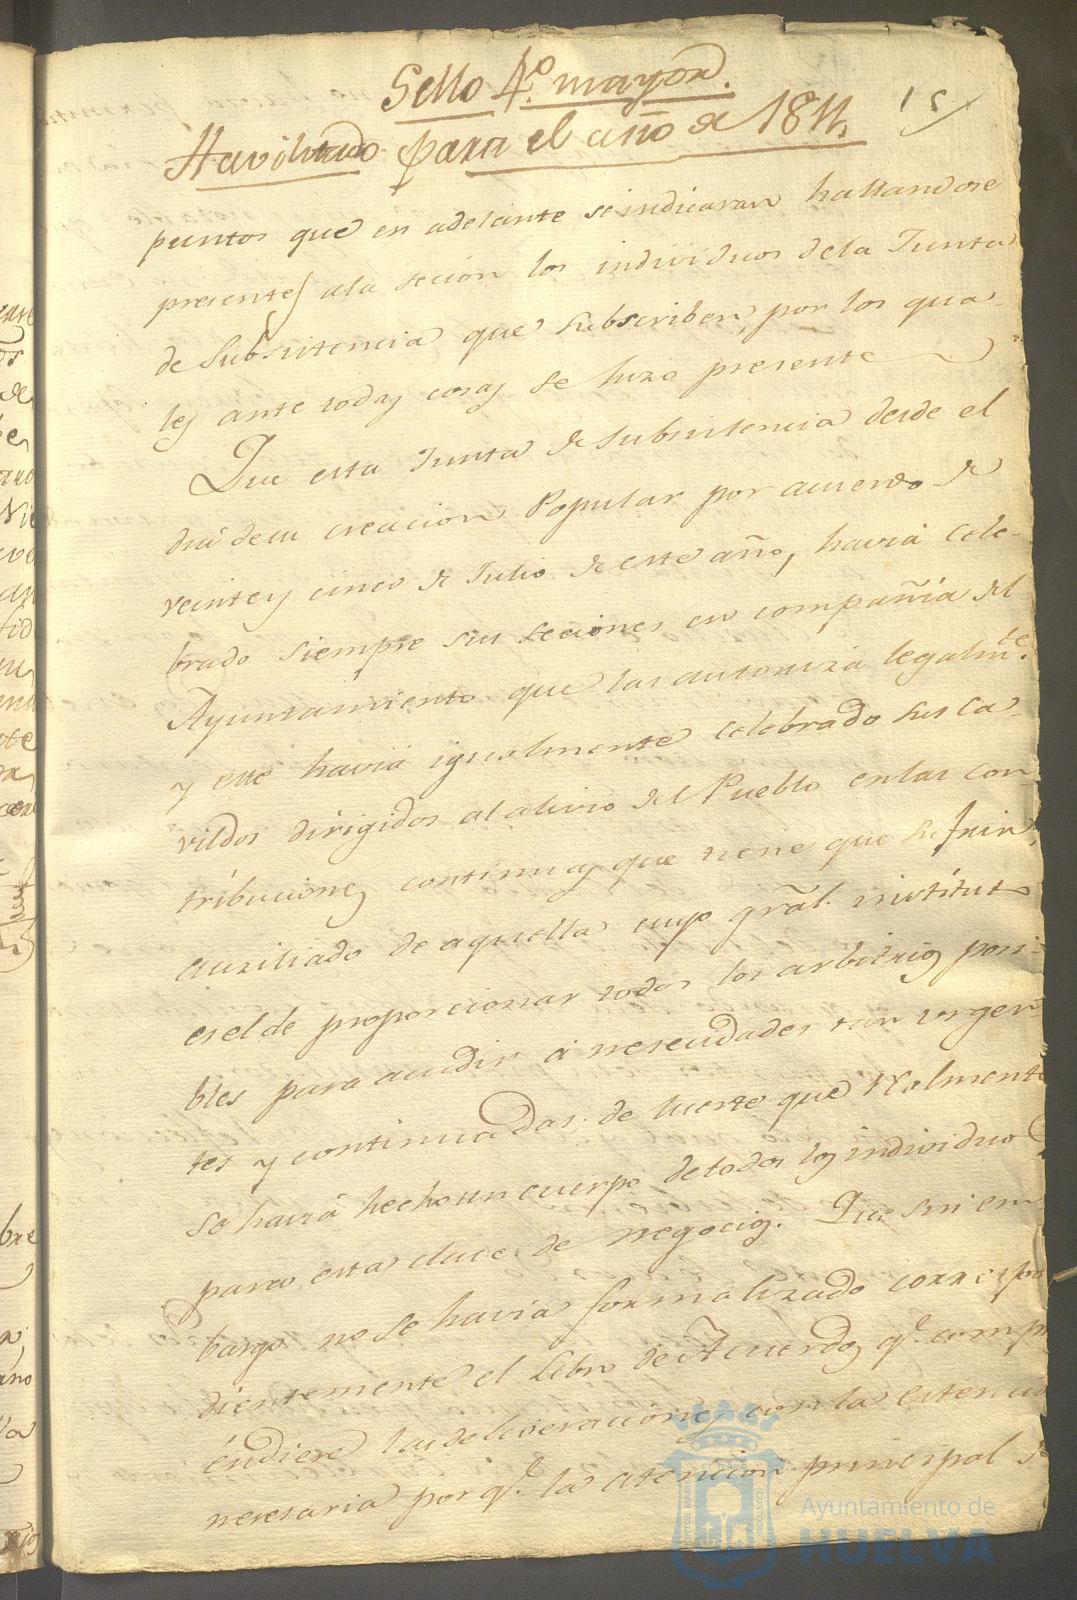 Sello 4º mayor.
Havilitado para el año de 1811.
15
puntos que en adelante se indicaran hallandose
presentes ala secion los individuos dela Junta
de Subsistencia que subscriben, por los qua-
les ante todas cosas se hizo presente
Que esta Junta de Subsistencia desde el
dia desu creacion Popular por acuerdo de
veinte y cinco de Julio de este año, havia cele-
brado siempre sus seciones en compañia del
Ayuntamiento que las autoriza legalmte.
y este havia igualmente celebrado sus Ca-
vildos dirigidos al alivio del Pueblo enlas con
tribuciones continuas que tiene que sufrir,
auxiliado de aquella cuyo gral. instituto
es el de proporcionar todos los arbitrios posi-
bles para acudir á nesecidades tan urgen-
tes y continuadas; de suerte que realmente
se havia hecho un cuerpo de todos los individuos
para esta clase de negocios. Que sin em
bargo no se havia formalizado correspon
dientemente el Libro de Acuerdos qe. compr
endiese las deliveraciones con la estencion
nesesaria por qe. la atencion principal de
Ayuntamiento de
HUELVA